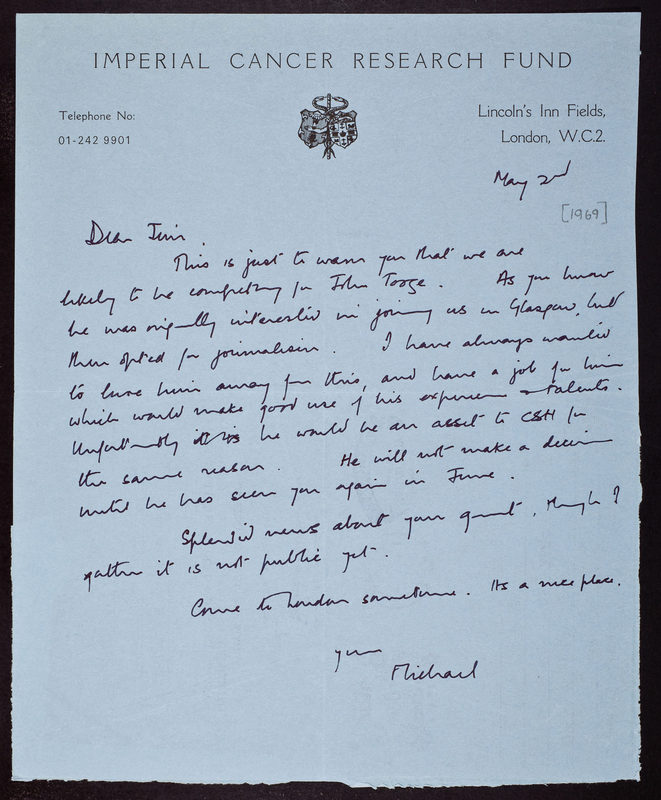 IMPERIAL CANCER RESEARCH FUND
Telephone No:
01-242 9901
Lincoln's Inn Fields,
London, W.C.2.
May 2nd
[1969]
Dear Jim,
This is just to warn you that we are
likely to be competing for John Tooze. As you know
he was originally interested in joining us in Glasgow, but
then opted for journalism. I have always wanted
to lure him away from this, and have a job for him
which would make good use of his experience + talents.
Unfortunately he would be an asset to CSH for
the same reason. He will not make a decision
until he has seen you again in June.
Splendid news about your grant, though I
gather it is not public yet.
Come to London sometime. Its a nice place.
yours
Michael